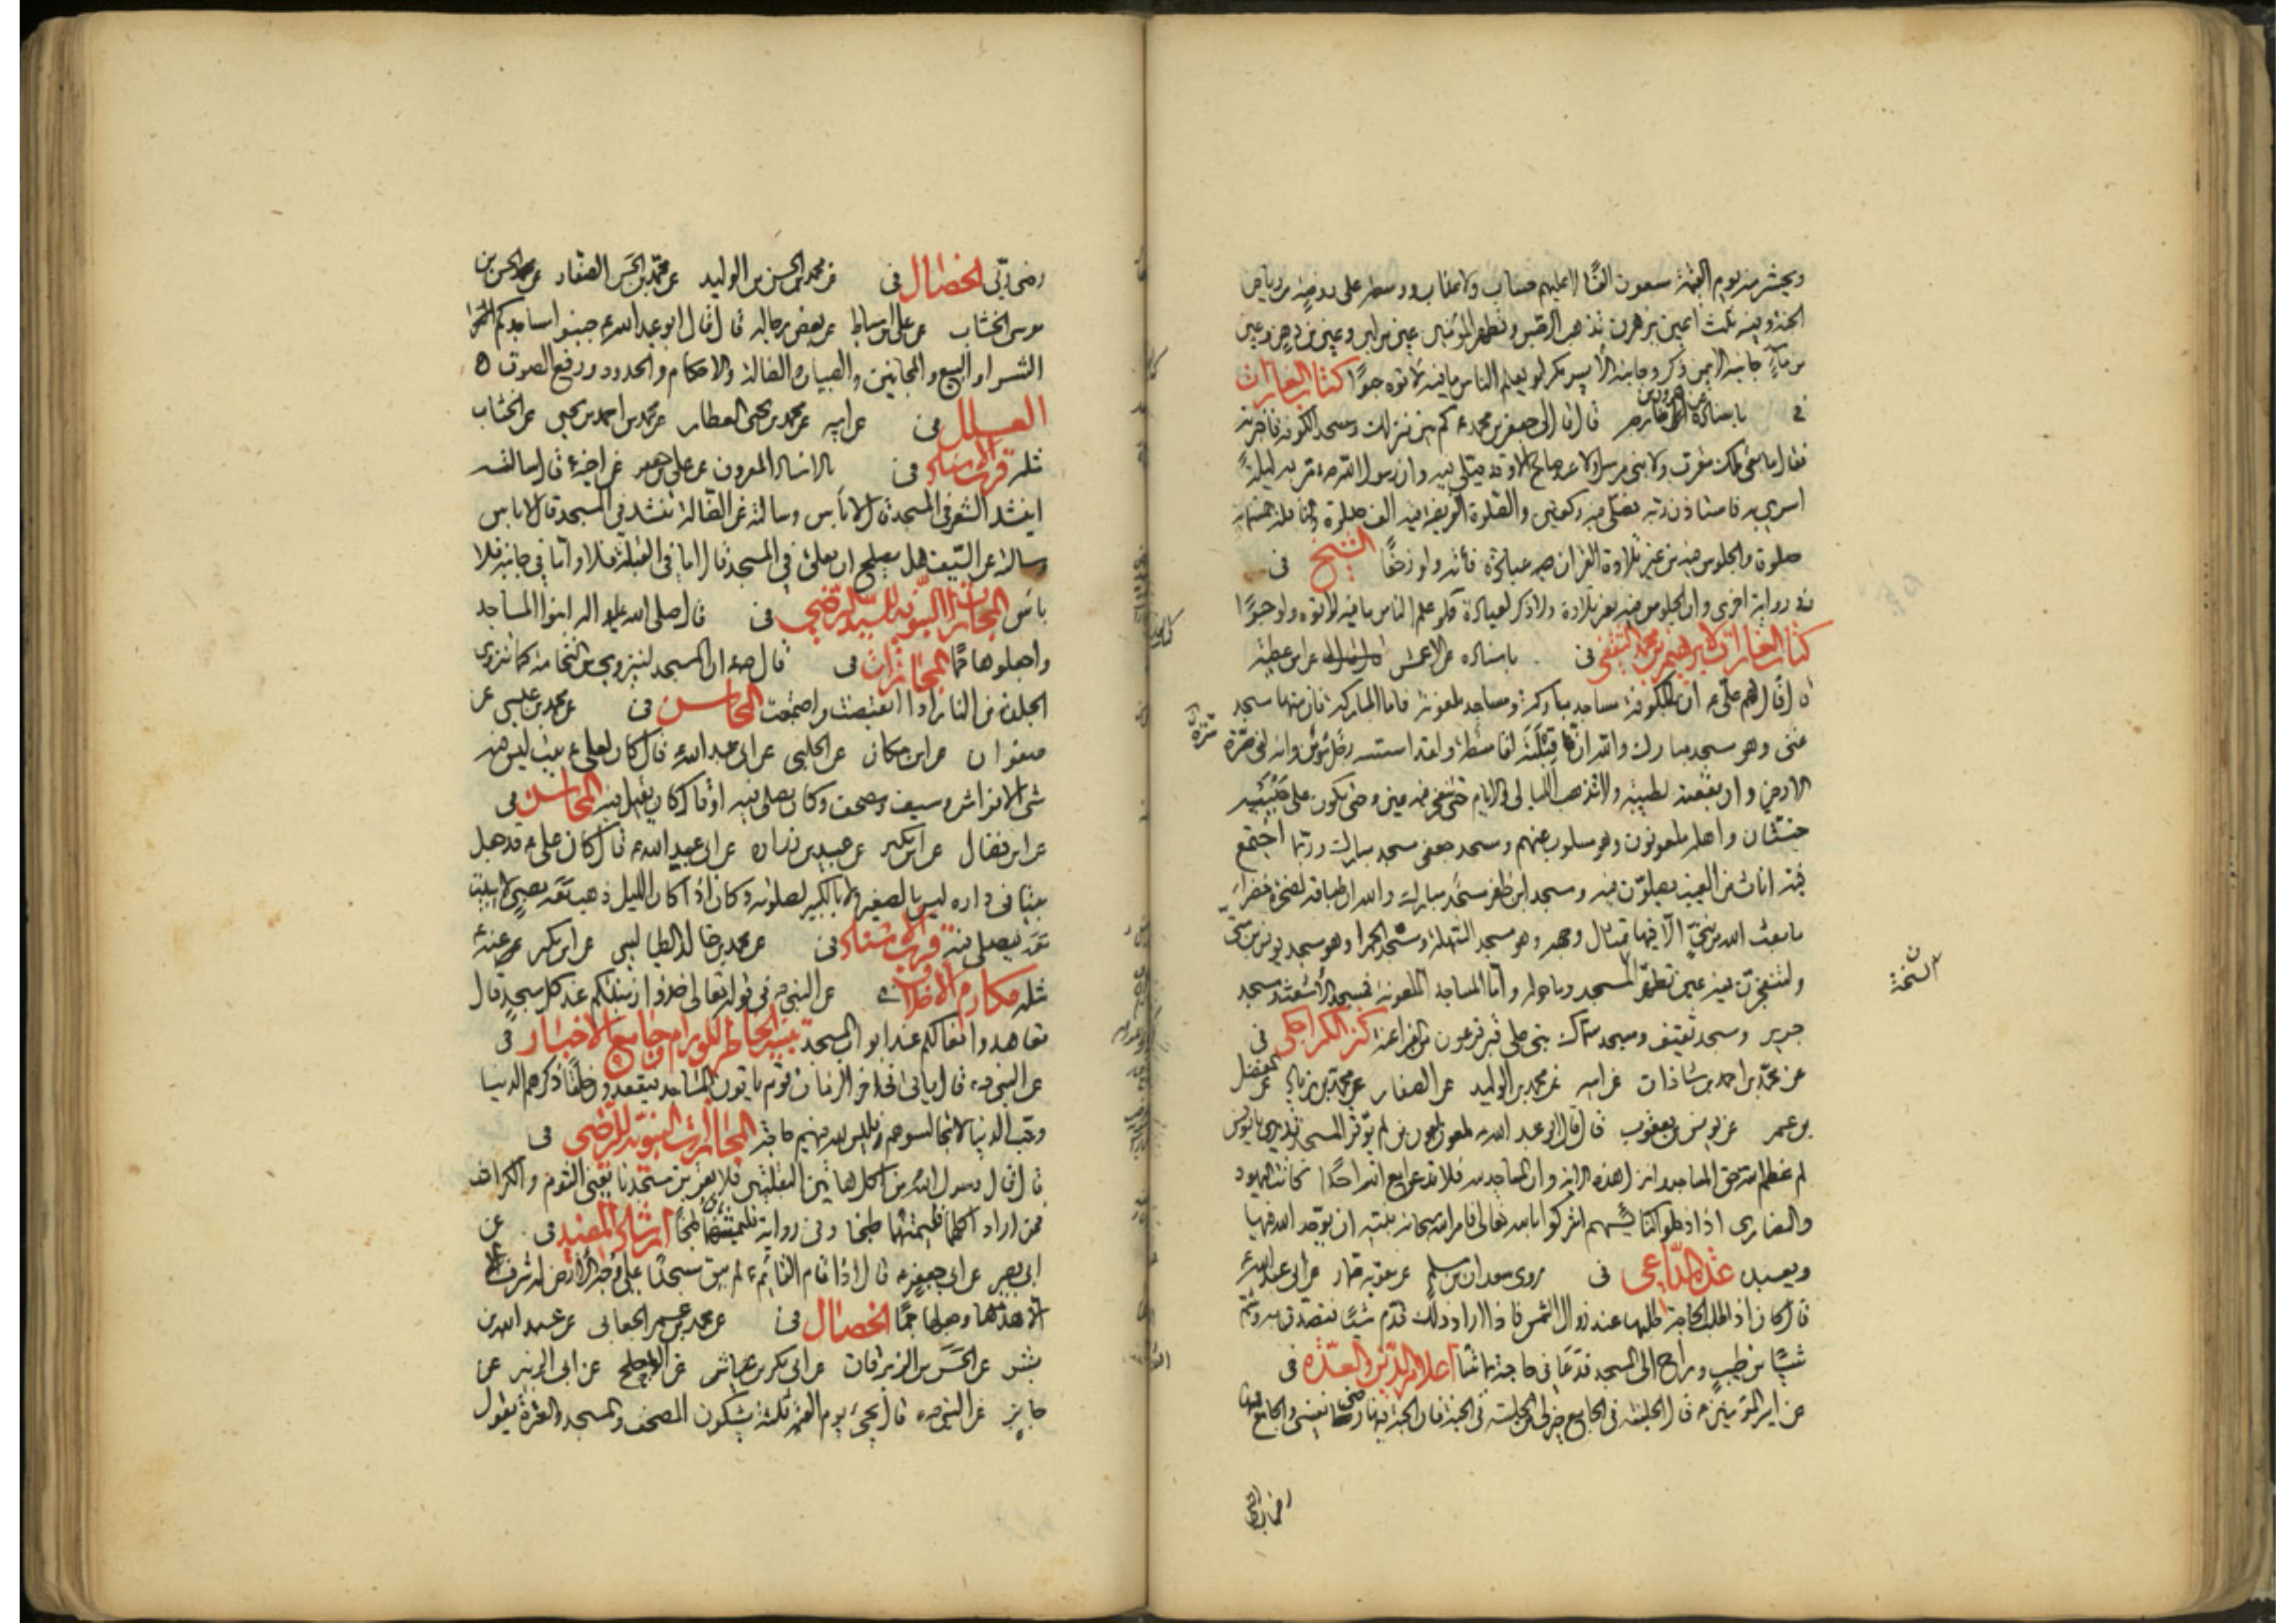 ويحشر منه يوم القيمة سبعون الفا لا عليهم حساب ولا عذاب ووسطه على روضة من رياض
الجنة وفيه ثلث اعين يزهرن تذهب الرجس وتطهر المؤمنين عين من لبن وعين من دهن وعين
من ماء جانبه الايمن ذكر وجانبه الأيسر مكر لو يعلم الناس ما فيه لأتوه حبوا كتاب الغارات
في باسناده عن قال قال لي جعفر بن محمد ع كم بين منزلك ومسجد الكوفة فاخبرته
فقال ما بقي ملك مقرب ولا نبي مرسل ولا عبد صالح الا وقد صلى فيه وان رسول الله ص مر به ليلة
اسري به فاستاذن ربه فصلى فيه ركعتين والصلوة الفريضة فيه الف صلوة والنافلة خمسمائة
صلوة والجلوس فيه من غير تلاوة القران فيه عبادة فأته ولو زحفا الشيخ في
رواية اخرى وان الجلوس فيه بغير تلاوة ولا ذكر لعبادة فلو علم الناس ما فيه لاتوه ولو حبوا
كتاب الغارات لابرهيم بن محمد الثقفي في باسناده عن الاعمش عن ابن عطية
قال قال لهم علي ع ان بالكوفة مساجد مباركة ومساجد ملعونة فاما المباركة فان منها مسجد
غنى وهو مسجد مبارك والله ان قبلته لقاسطة ولقد اسسه رجل مؤمن وانه لفي سرة
الارض وان بقعته لطيبة ولا تذهب الليالي والايام حتى تنفجر فيه عين وحتى يكون على جنبيه
جنتان واهله ملعونون وهو مسلوب منهم ومسجد جعفى مسجد مبارك وربما اجتمع
فيه اناث من الغيب يصلون فيه ومسجد ابن ظفر مسجد مبارك والله ان طباقه لصخرة خضراء
ما بعث الله من نبي الا فيها تمثال وجهه وهو مسجد السهلة ومسجد الحمرا وهو مسجد يونس بن متى
ولتنفجرن فيه عين تطهر المسجد وما حوله واما المساجد الملعونة فمسجد الأشعث ومسجد
جرير ومسجد ثقيف ومسجد سماك بني على قبر فرعون من الفراعنة كنز الكراجكي في
عن محمد بن احمد بن شاذان عن ابيه عن محمد بن الوليد عن الصفار عن محمد بن زياد عن المفضل
بن عمر عن يونس بن يعقوب قال قال ابو عبد الله ع ملعون ملعون من لم يوقر المسجد تدري يا يونس
لم عظم الله حق المساجد وانزل هذه الاية وان المساجد لله فلا تدعوا مع الله احدا كانت اليهود
والنصارى اذا دخلوا كنائسهم اشركوا بالله تعالى فامر الله سبحانه نبيه ان يوحد الله فيها
ويعبده عدة الداعي في روى سعدان بن مسلم عن معوية بن عمار عن ابي عبد الله ع
قال كان اذا طلب الحاجة طلبها عند زوال الشمس فاذا اراد ذلك قدم شيئا فتصدق به وشم
شيئا من طيب وراح الى المسجد فدعا في حاجته بما شاء اعلام الدين والعدة في
عن امير المؤمنين ع قال الجلسة في الجامع خير لي من الجلسة في الجنة فان الجنة فيها رضى نفسي والجامع فيها
رضى ربي
النسخة
رضى ربي الخصال في عن محمد بن الحسن بن الوليد عن محمد بن الحسن الصفار عن الحسن بن
موسى الخشاب عن علي بن اسباط عن بعض رجاله قال قال ابو عبد الله ع جنبوا مساجدكم
الشراء والبيع والمجانين والصبيان والضالة والاحكام والحدود ورفع الصوت ه
العلل في عن ابيه عن محمد بن يحيى العطار عن محمد بن احمد بن يحيى عن الخشاب
مثله قرب الاسناد في بالاسناد المعروف عن علي بن جعفر عن اخيه ع قال سالته
اينشد الشعر في المسجد قال لا بأس وسالته عن الضالة تنشد في المسجد قال لا باس
وسالته عن السيف هل يصلح ان يعلق في المسجد فقال اما في القبلة فلا واما في جانبه فلا
باس المجازات النبوية للسيد الرضي في قال صلى الله عليه واله ابنوا المساجد
واجعلوها جما المجازات في قال ص ان المسجد لينزوي من النخامة كما تنزوي
الجلدة من النار اذا انقبضت واجتمعت المحاسن في عن محمد بن عيسى عن
صفوان عن ابن مسكان عن الحلبي عن ابي عبد الله ع قال كان لعلي ع بيت ليس فيه
شى الا فراش وسيف ومصحف وكان يصلى فيه او قال كان يقيل فيه المحاسن في
عن ابن فضال عن ابن بكير عن عبيد بن زراره عن ابي عبد الله ع قال كان علي ع قد جعل
بيتا في داره ليس بالصغير ولا بالكبير لصلوته وكان اذا كان الليل ذهب معه بصبي لا يبيت
معه فيصلى فيه قرب الاسناد في عن محمد بن خالد الطيالسي عن ابن بكير عن عنه ع
مثله مكارم الاخلاق في عن النبي ص في قوله تعالى خذوا زينتكم عند كل مسجد قال
تعاهدوا نعالكم عند ابواب المسجد تنبيه الخاطر للورام وجامع الاخبار في
عن النبي ص قال ياتي في اخر الزمان قوم ياتون المساجد فيقعدون حلقا ذكرهم الدنيا
وحب الدنيا لا تجالسوهم فليس لله فيهم حاجة المجازات النبوية للرضي في
قال قال رسول الله ص من اكل هاتين البقلتين فلا يقربن مسجدنا يعني الثوم والكراث
فمن اراد اكلهما فليمتهما طبخا وفي رواية فليمثهما طبخا ارشاد المفيد في عن
ابي بصير عن ابي جعفر ع قال اذا قام القائم ع لم يبق مسجد على وجه الأرض له شرف
الا هدمها وجعلها جما الخصال في عن محمد بن عمر الجعابي عن عبد الله بن
بشير عن الحسن بن الزبرقان عن ابي بكر بن عياش عن الاجلح عن ابي الزبير عن
جابر عن النبي ص قال يجيء يوم القيمة ثلثة يشكون المصحف والمسجد والعترة يقول